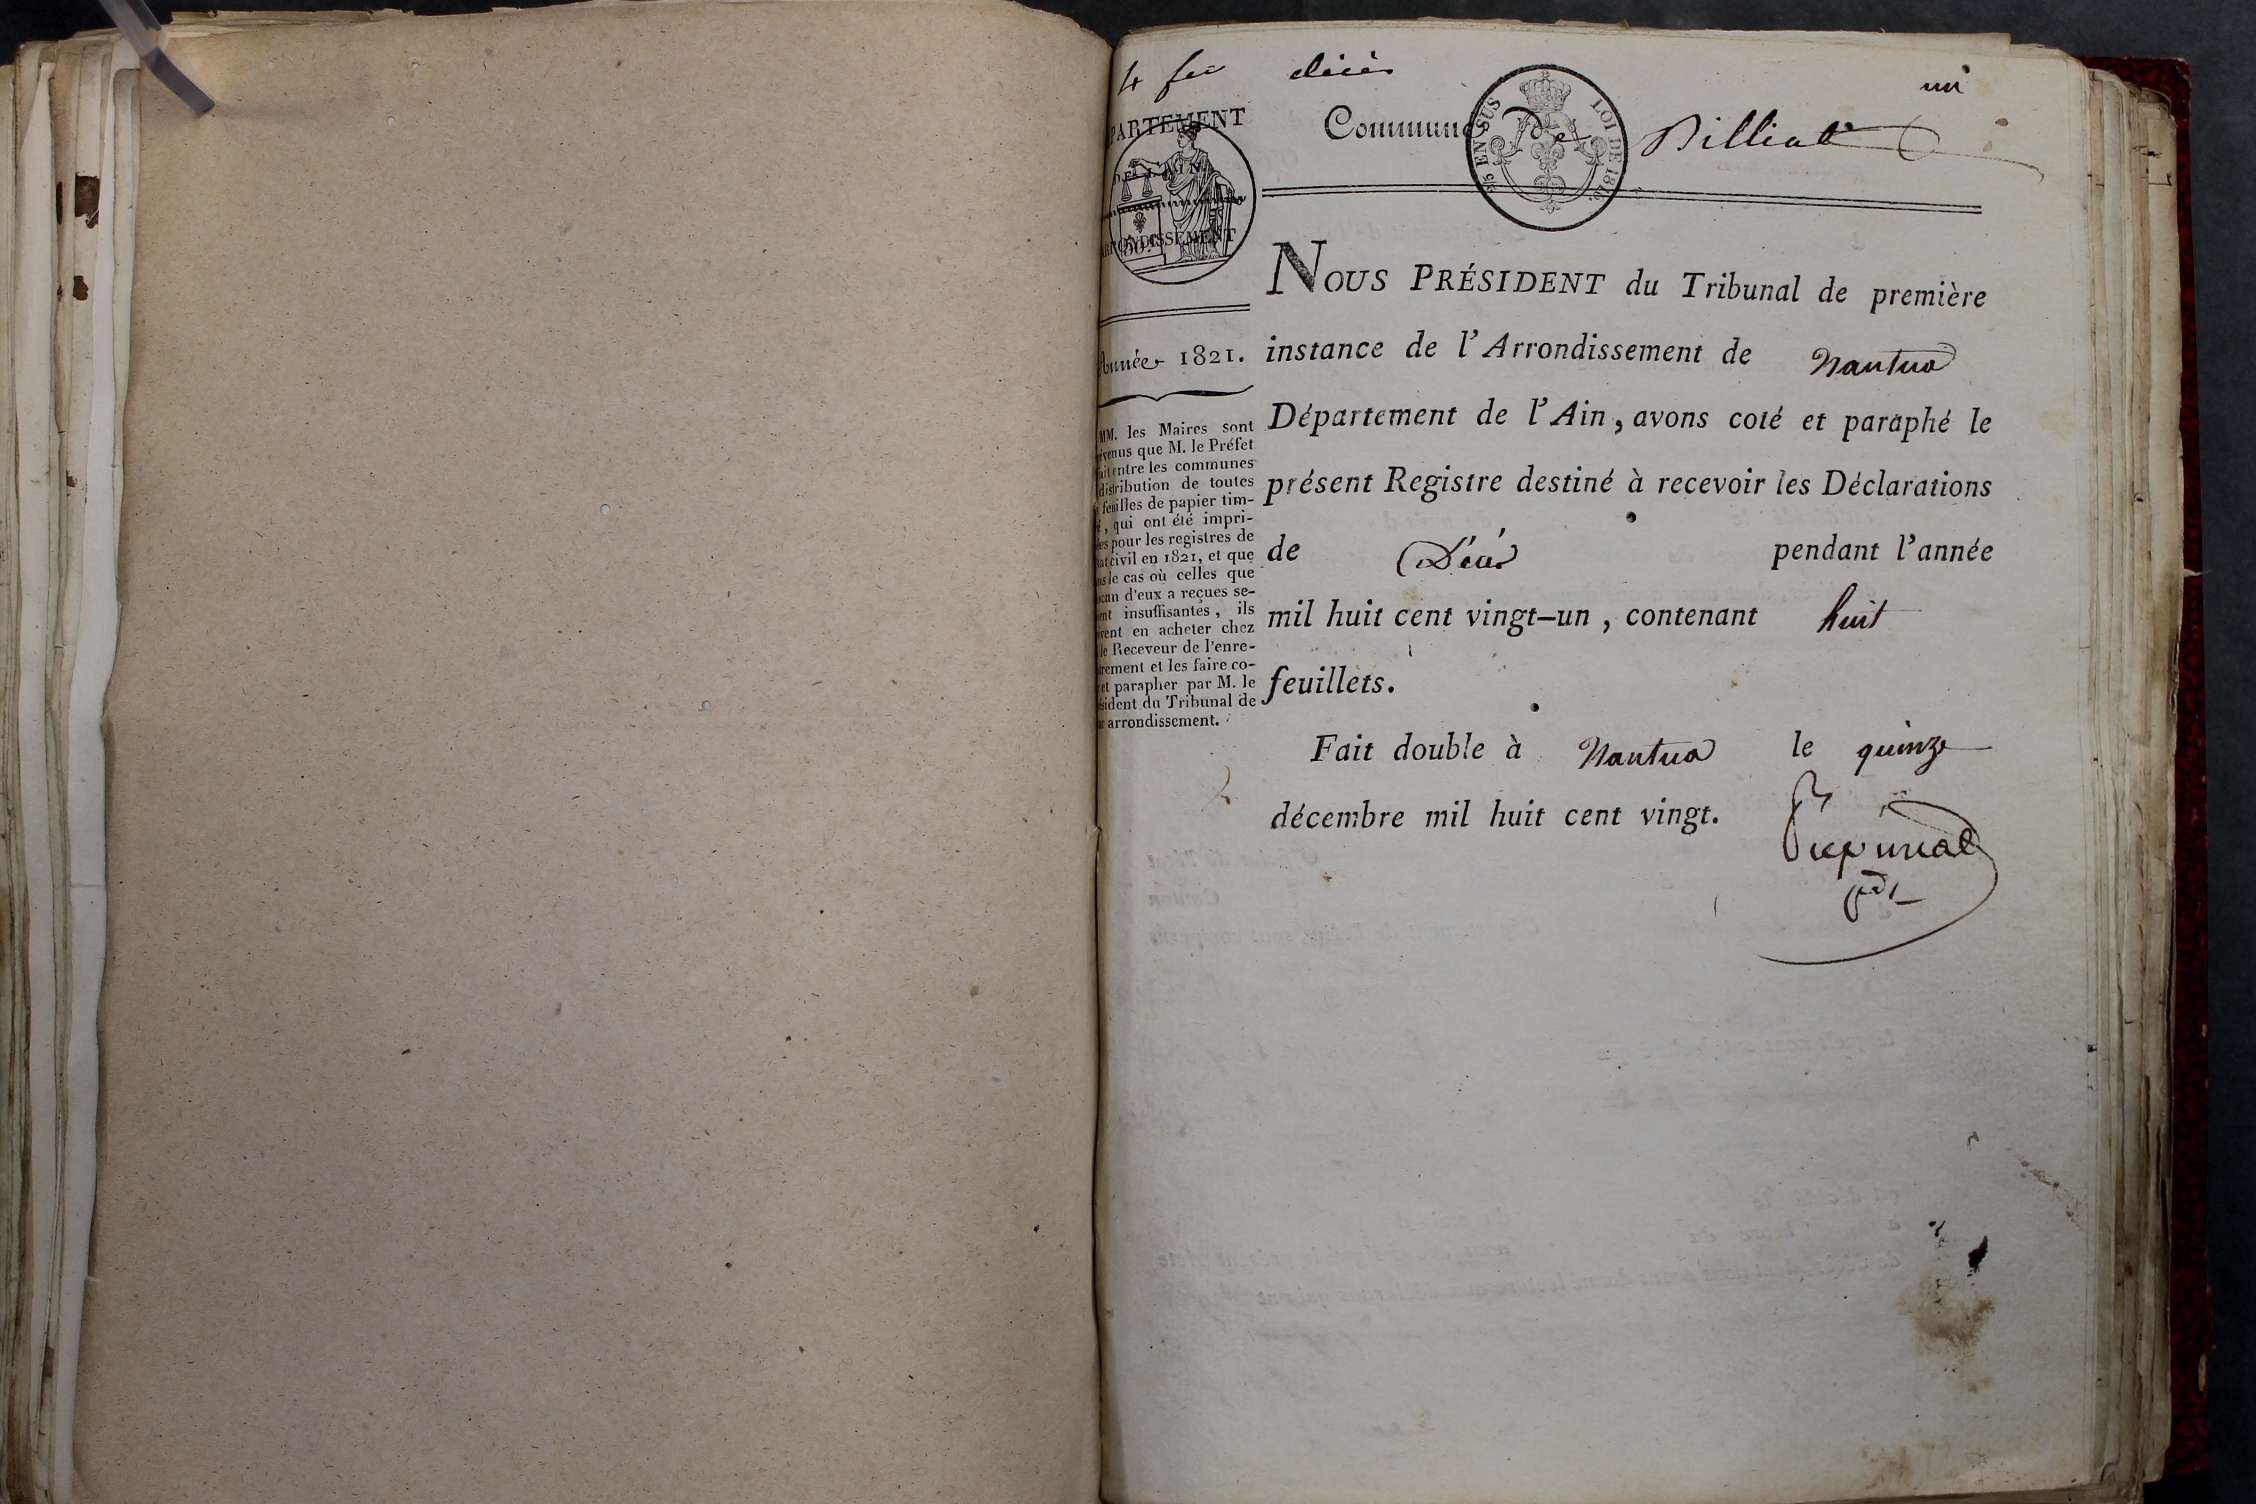 4 décès un
PARTEMENT
Commune de Billiat
EN SUS LOI DE
DE L'AIN
ARRONDISSEMENT
50
Année 1821.
MM. les Maires sont
venus que M. le Préfet
ait entre les communes
distribution de toutes
feuilles de papier tim-
, qui ont été impri-
es pour les registres de
at civil en 1821, et que
ns le cas où celles que
cun d'eux a reçues se-
ent insuffisantes, ils
vent en acheter chez
le Receveur de l'enre-
rement et les faire co-
et parapher par M. le
sident du Tribunal de
r arrondissement.
NOUS PRÉSIDENT du Tribunal de première
instance de l'Arrondissement de Nantua
Département de l'Ain, avons coté et paraphé le
présent Registre destiné à recevoir les Déclarations
de Décès pendant l'année
mil huit cent vingt-un, contenant huit
feuillets.
Fait double à Nantua le quinze
décembre mil huit cent vingt.